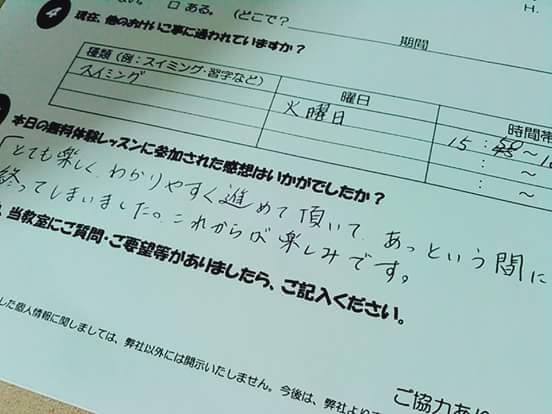 ない。 □ ある。 (どこで?
期間
H.
4 現在、他のおけいこ事に通われていますか?
種類 (例:スイミング・習字など) 曜日 時間帯
スイミング 火曜日 15:50～
: ～
: ～
本日の無料体験レッスンに参加された感想はいかがでしたか?
とても楽しく、わかりやすく進めて頂いて、あっという間に
終ってしまいました。これからが楽しみです。
当教室にご質問・ご要望等がありましたら、ご記入ください。
した個人情報に関しましては、弊社以外には開示いたしません。今後は、弊社より
ご協力あり